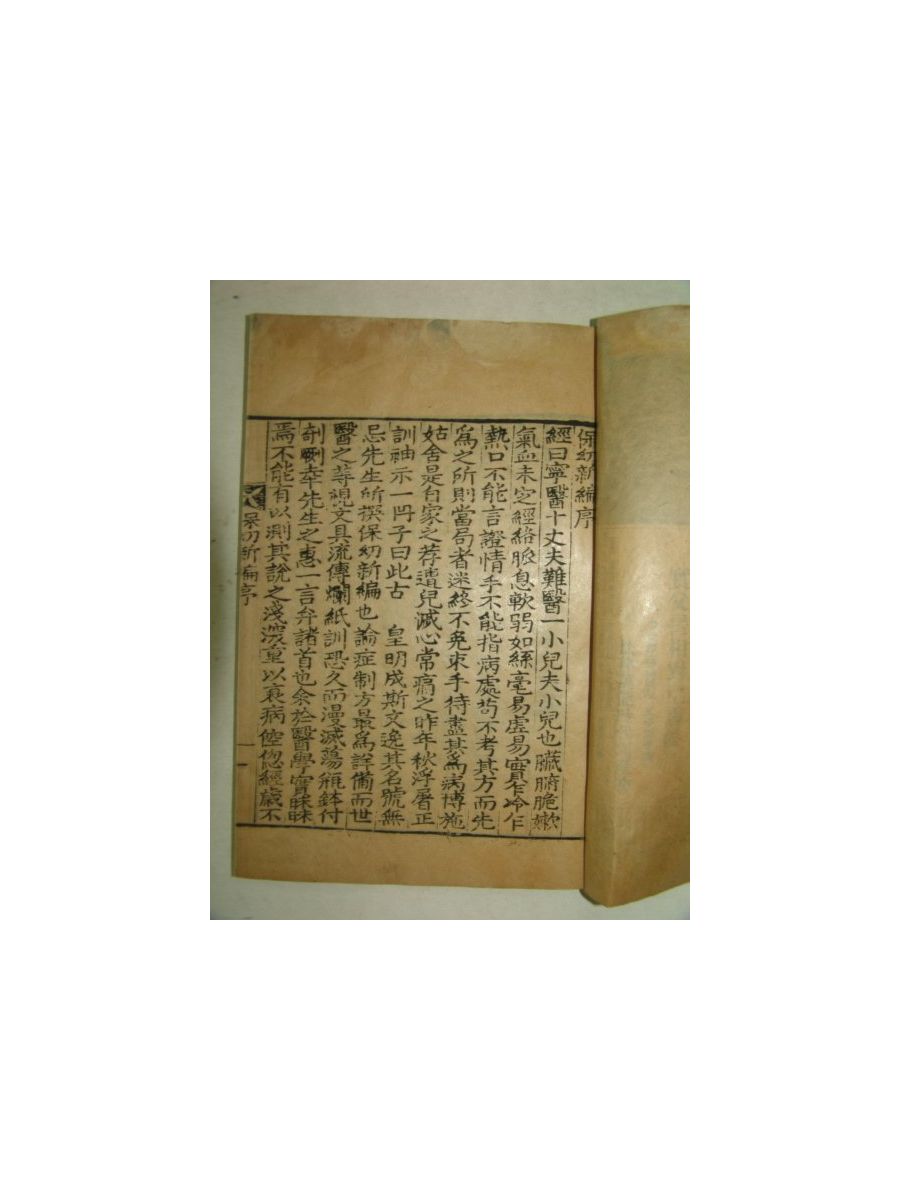 保幼新編序
經曰寧醫十丈夫難醫一小兒夫小兒也臟腑脆嫰
氣血未定經絡脈息軟弱如絲毫易虛易實乍冷乍
熱口不能言證情手不能指病處苟不考其方而先
爲之所則當局者迷終不免束手待盡其爲病博施
姑舍是自家之荐遭兒滅心常痛之昨年秋浮屠正
訓袖示一冊子曰此古 皇明成斯文逸其名號無
忌先生所撰保幼新編也論症制方最爲詳備而世
醫之等視文具流傳爛紙訓恐久而漫滅蕩瓶鉢付
剞劂幸先生之惠一言弁諸首也余於醫學實昧昧
焉不能有以測其說之淺深重以衰病倥偬經歲不
保幼新編序 一